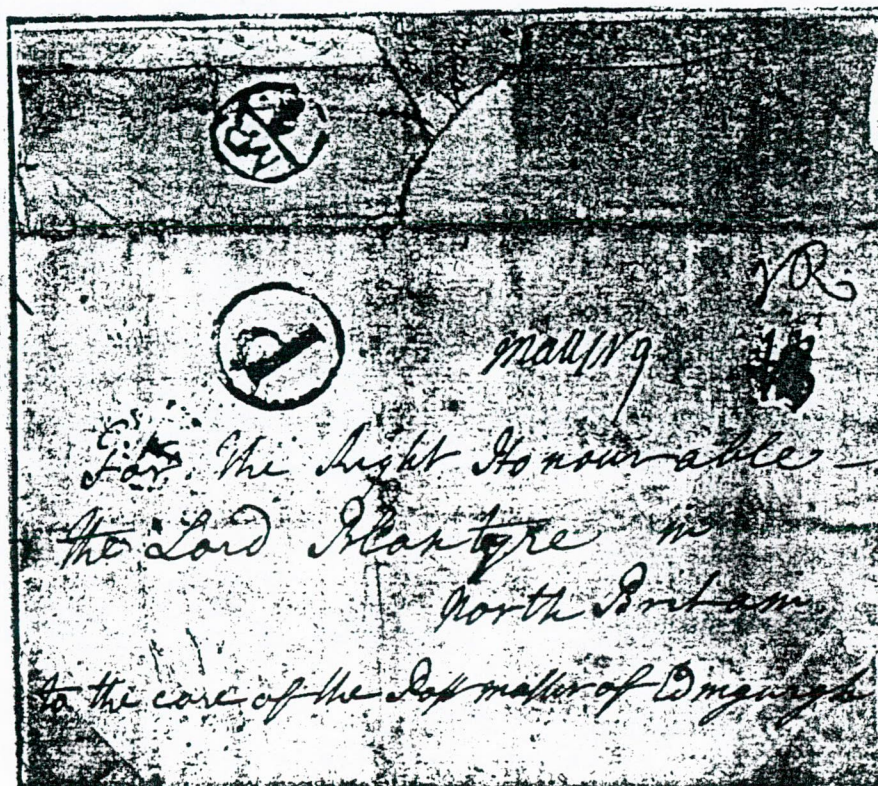 For. The Right Honourable —
the Lord Blantyre in
North Britain
to the care of the Post master of Edingurgh